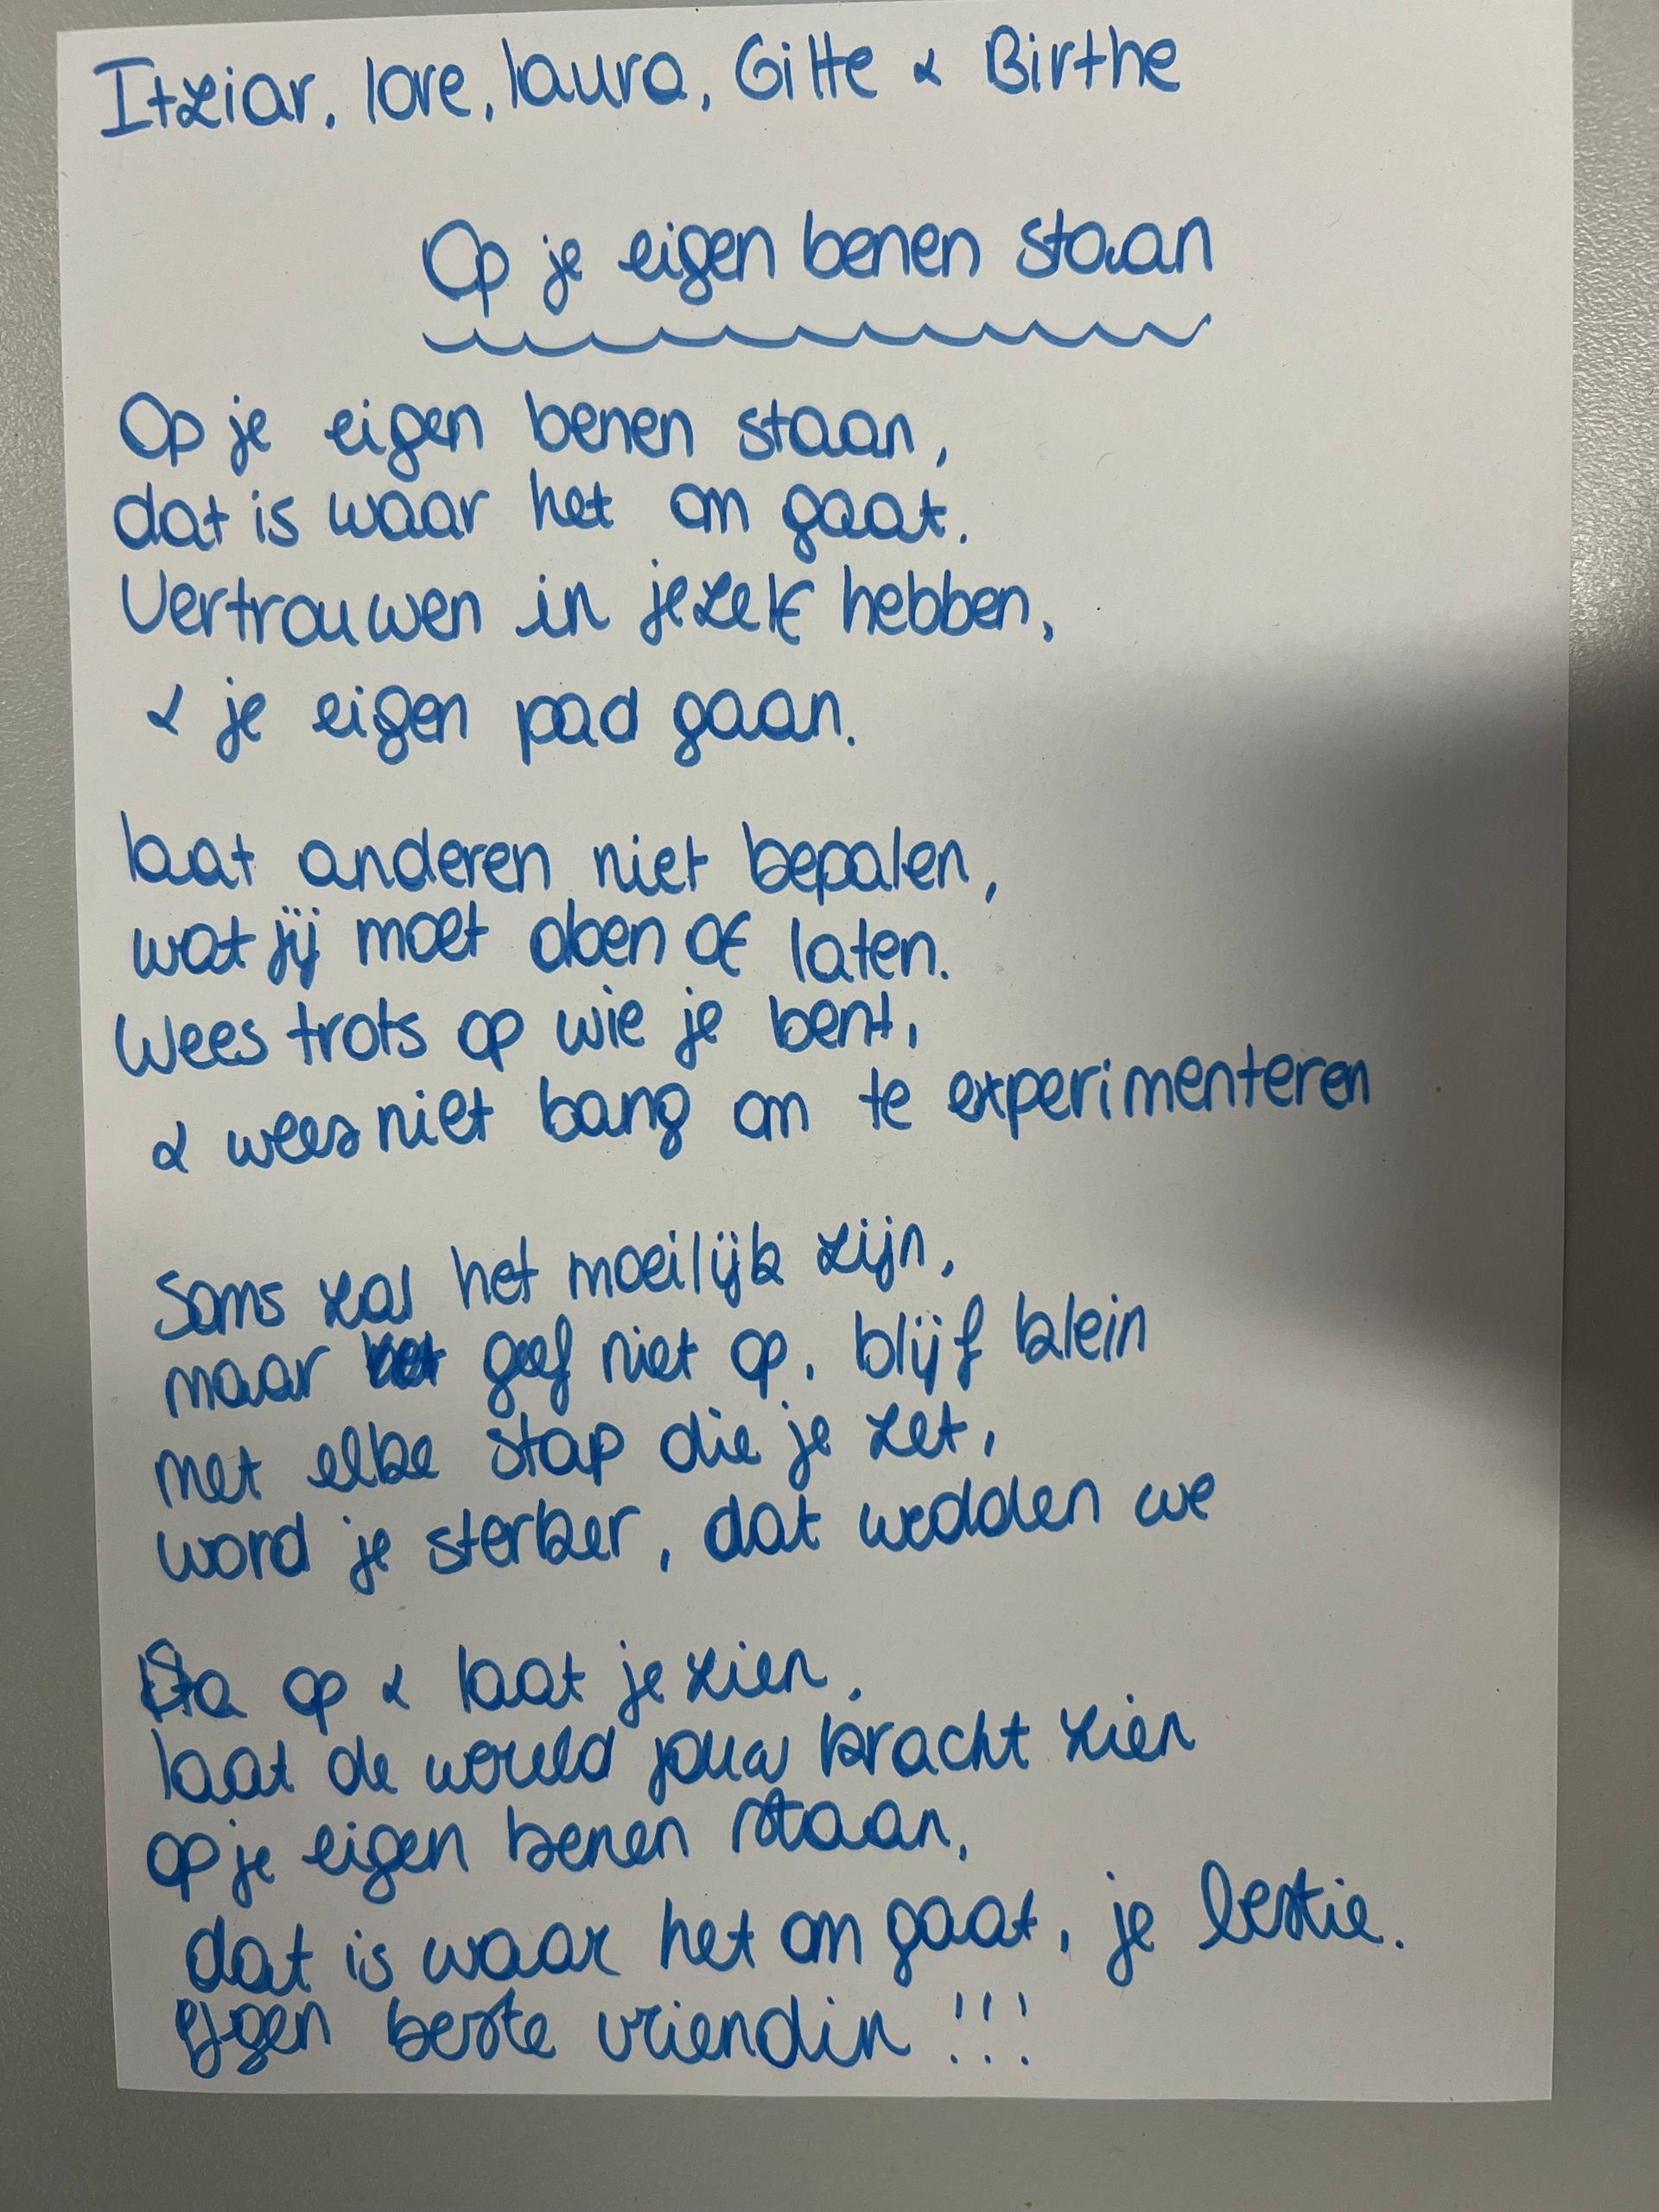 Itziar, lore, laura, Gitte & Birthe
Op je eigen benen staan
Op je eigen benen staan,
dat is waar het om gaat.
Vertrouwen in jezelf hebben,
& je eigen pad gaan.
laat anderen niet bepalen,
wat jij moet doen of laten.
Wees trots op wie je bent,
& wees niet bang om te experimenteren
Soms zal het moeilijk zijn,
maar geef niet op, blijf klein
met elke stap die je zet,
word je sterker, dat wedden we
Sta op & laat je zien,
laat de wereld jouw kracht zien
op je eigen benen staan,
dat is waar het om gaat, je bestie.
Eigen beste vriendin !!!